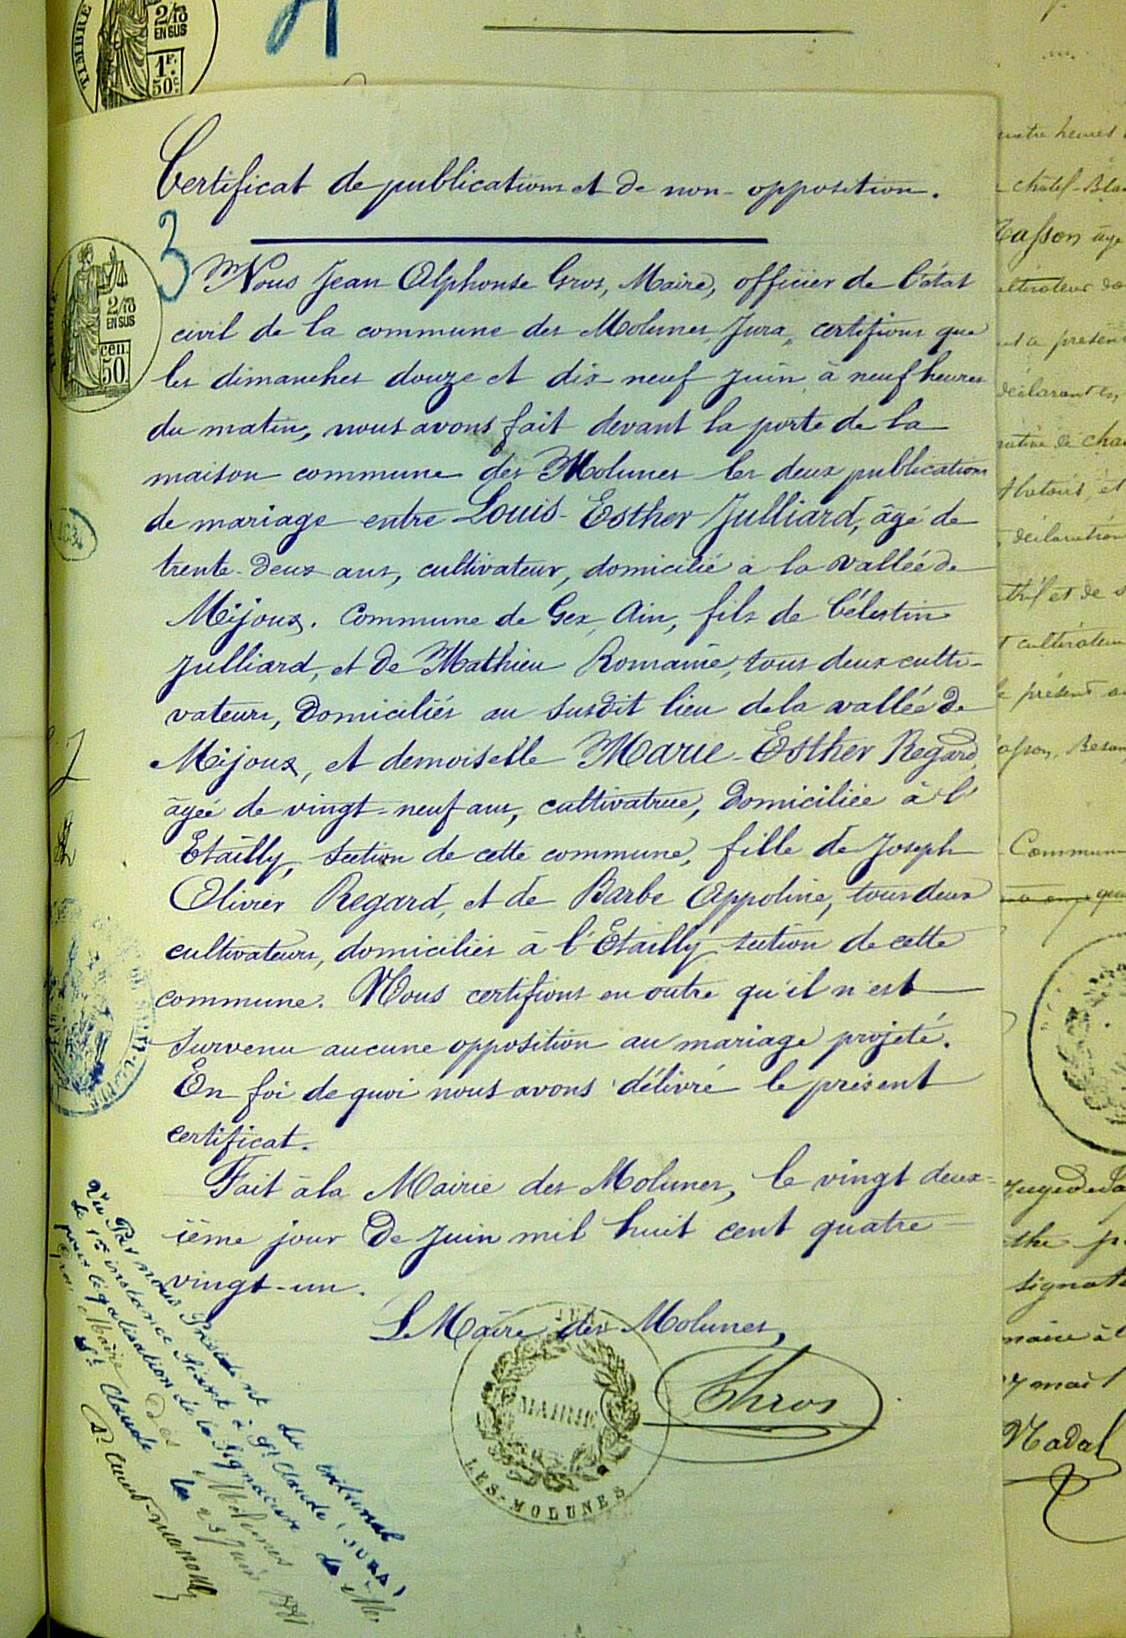 TIMBRE
2/10
EN SUS
1F.
50c.
Certificat de publications et de non-opposition.
3
2/10
EN SUS
cen.
50
Nous Jean Alphonse Gros, Maire, officier de l'état
civil de la commune des Molunes, Jura, certifions que
les dimanches douze et dix-neuf juin, à neuf heures
du matin, nous avons fait devant la porte de la
maison commune des Molunes les deux publications
de mariage entre Louis-Esther Julliard, âgé de
trente-deux ans, cultivateur, domicilié à la vallée de
Mijoux. Commune de Gex, Ain, fils de Célestin
Julliard, et de Mathieu Romanie, tous deux culti-
vateurs, domiciliés au susdit lieu de la vallée de
Mijoux, et demoiselle Marie-Esther Regard,
âgée de vingt-neuf ans, cultivatrice, domiciliée à l'
Etailly, section de cette commune, fille de Joseph
Olivier Regard, et de Barbe Appoline, tous deux
cultivateurs, domiciliés à l'Etailly section de cette
commune. Nous certifions en outre qu'il n'est
survenu aucune opposition au mariage projeté.
En foi de quoi nous avons délivré le présent
certificat.
Fait à la Mairie des Molunes, le vingt deux-
ième jour de juin mil huit cent quatre-
vingt-un.
Le Maire des Molunes,
JURA
MAIRIE
LES-MOLUNES
Vu Par nous Président du tribunal
de 1re instance séant à St Claude (JURA)
pour légalisation de la signature de Mr
Gros Maire des Molunes
St Claude le 23 juin 1881
Commune
signat
Nadal